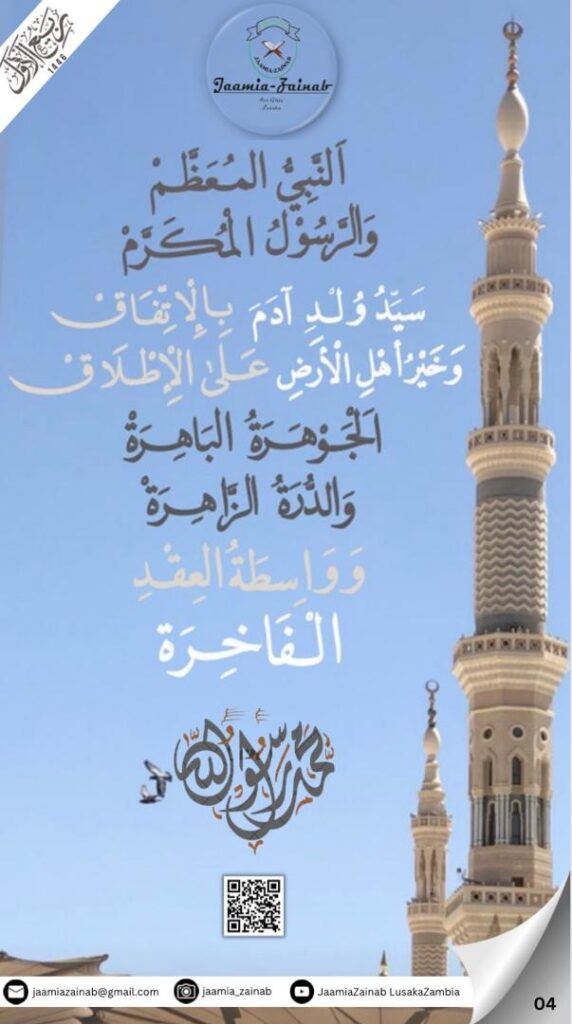 ربيع الأول
1446
JAAMIA-ZAINAB
Jaamia-Zainab
Lusaka
اَلنَّبِيُّ المُعَظَّمْ
وَالرَّسُوْلُ الْمُكَرَّمْ
سَيِّدُ وُلْدِ آدَمَ بِالْاِتِّفَاقْ
وَخَيْرُ أَهْلِ الْأَرضِ عَلىٰ الْإِطْلَاقْ
اَلْجَوْهَرَةُ البَاهِرَةْ
وَالدُّرَةُ الزَّاهِرَةْ
وَوَاسِطَةُ العِقْدِ
الْفَاخِرَة
محمد رسول الله
jaamiazainab@gmail.com
jaamia_zainab
JaamiaZainab LusakaZambia
04